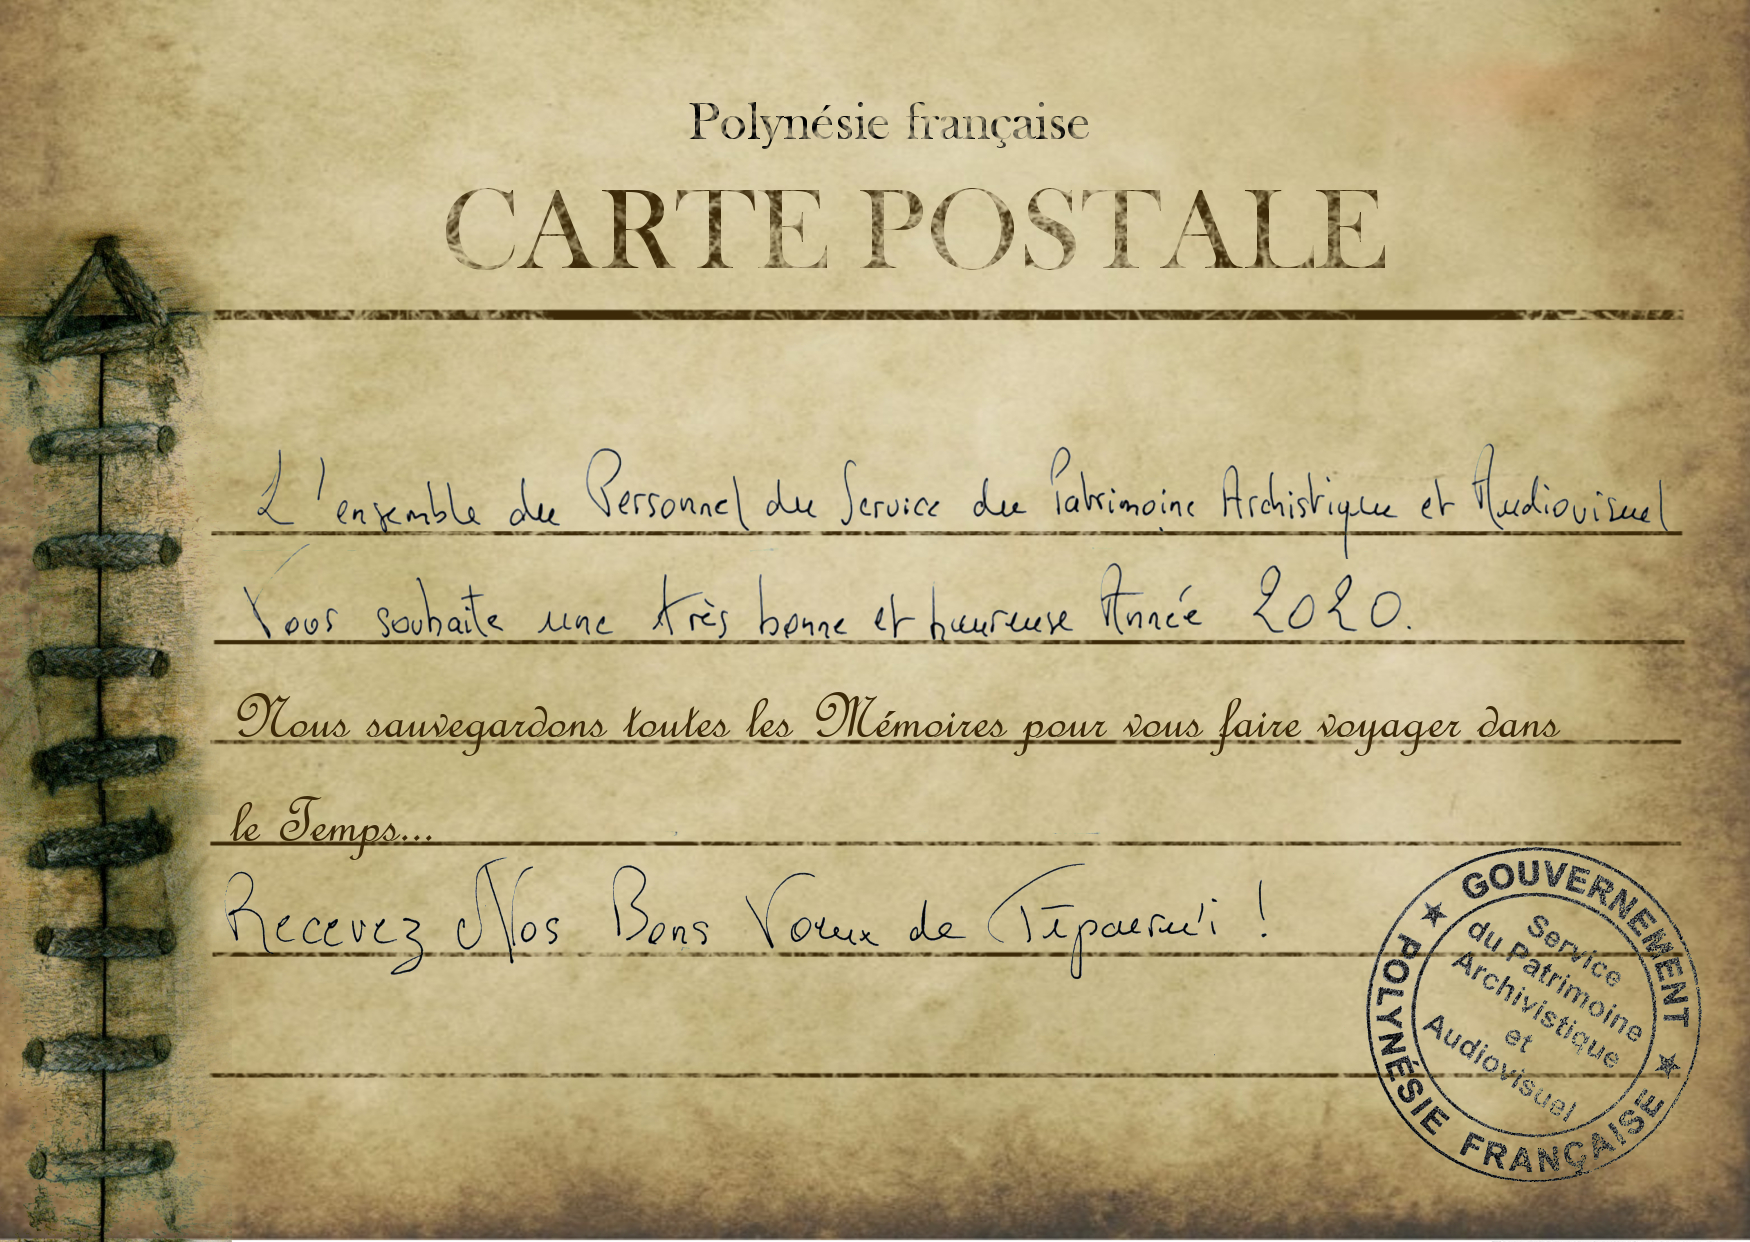 Polynésie française
CARTE POSTALE
L'ensemble du Personnel du Service du Patrimoine Archistique et Audiovisuel
Vous souhaite une très bonne et heureuse Année 2020.
Nous sauvegardons toutes les Mémoires pour vous faire voyager dans
le Temps...
Recevez Nos Bons Voeux de Tīpaeru'i !
GOUVERNEMENT
Service
du Patrimoine
Archivistique
et
Audiovisuel
POLYNÉSIE FRANÇAISE